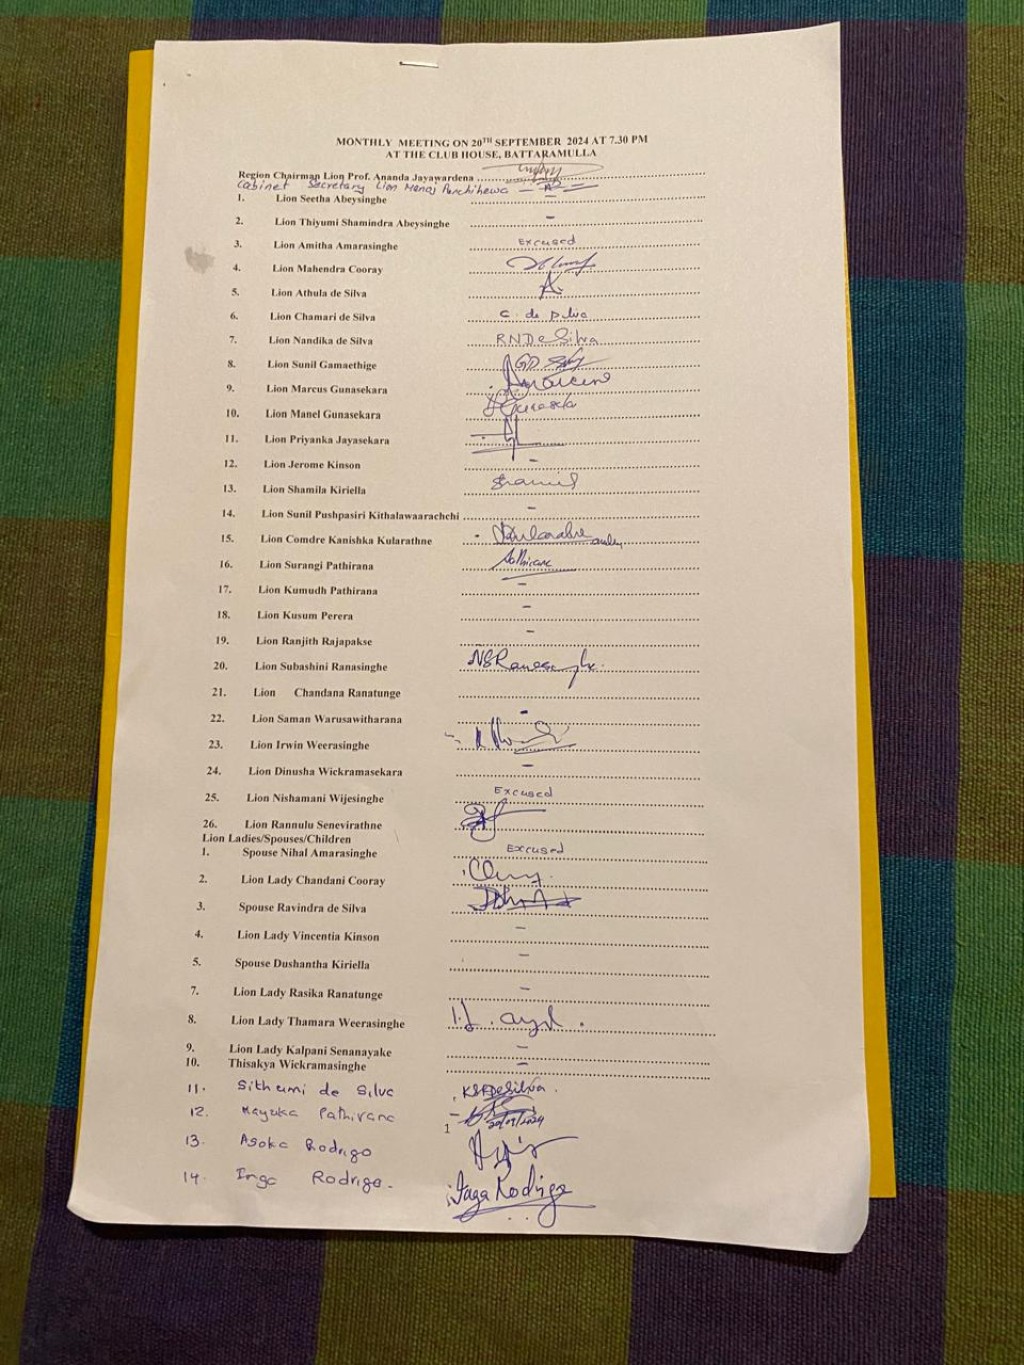 MONTHLY MEETING ON 20TH SEPTEMBER 2024 AT 7.30 PM
AT THE CLUB HOUSE, BATTARAMULLA
Region Chairman Lion Prof. Ananda Jayawardena
Cabinet Secretary Lion Manoj –
1. Lion Seetha Abeysinghe –
2. Lion Thiyumi Shamindra Abeysinghe –
3. Lion Amitha Amarasinghe Excused
4. Lion Mahendra Cooray
5. Lion Athula de Silva A.
6. Lion Chamari de Silva C. de Silva
7. Lion Nandika de Silva RNDeSilva
8. Lion Sunil Gamaethige
9. Lion Marcus Gunasekara
10. Lion Manel Gunasekara
11. Lion Priyanka Jayasekara
12. Lion Jerome Kinson –
13. Lion Shamila Kiriella
14. Lion Sunil Pushpasiri Kithalawaarachchi –
15. Lion Comdre Kanishka Kularathne
16. Lion Surangi Pathirana
17. Lion Kumudh Pathirana –
18. Lion Kusum Perera –
19. Lion Ranjith Rajapakse –
20. Lion Subashini Ranasinghe
21. Lion Chandana Ranatunge
22. Lion Saman Warusawitharana –
23. Lion Irwin Weerasinghe
24. Lion Dinusha Wickramasekara –
25. Lion Nishamani Wijesinghe Excused
26. Lion Rannulu Senevirathne
Lion Ladies/Spouses/Children
1. Spouse Nihal Amarasinghe Excused
2. Lion Lady Chandani Cooray
3. Spouse Ravindra de Silva
4. Lion Lady Vincentia Kinson –
5. Spouse Dushantha Kiriella –
7. Lion Lady Rasika Ranatunge –
8. Lion Lady Thamara Weerasinghe
9. Lion Lady Kalpani Senanayake –
10. Thisakya Wickramasinghe –
11. Sithumi de Silva
12. Mayuka Pathirana 20/09/2024
1
13. Asoka Rodrigo
14. Inga Rodrigo. Inga Rodrigo